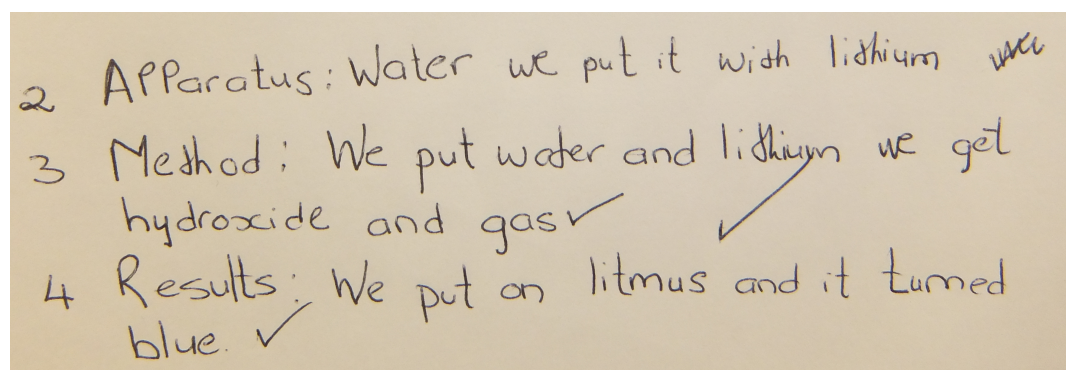 2 Apparatus: Water we put it with lithium
3 Method: We put water and lithium we get
hydroxide and gas ✓
4 Results: We put on litmus and it turned
blue. ✓